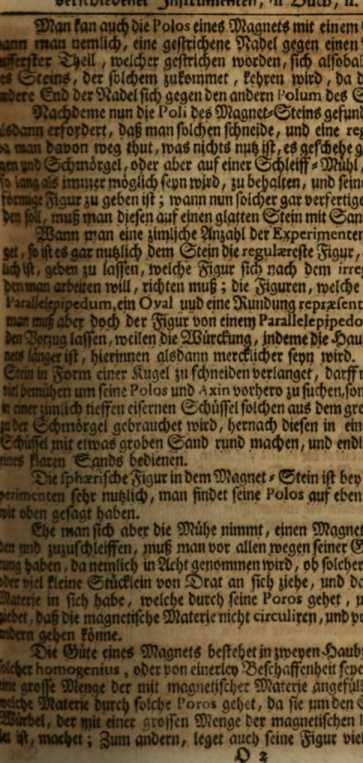 verschiedener Instrumenten, II Buch, II.
Man kan auch die Polos eines Magnets mit einem
wann man nemlich, eine gestrichene Nadel gegen einen
äusserster Theil, welcher gestrichen worden, sich alsobal
es Steins, der solchem zukommet, kehren wird, da d
andere End der Nadel sich gegen den andern Polum des S
Nachdeme nun die Poli des Magnet-Steins gefund
alsdann erfordert, daß man solchen schneide, und eine reg
man davon weg thut, was nichts nutz ist, es geschehe g
und Schmörgel, oder aber auf einer Schleiff-Mühl,
so lang als immer möglich seyn wird, zu behalten, und sein
förmige Figur zu geben ist; wann nun solcher gar verfertige
den soll, muß man diesen auf einen glatten Stein mit San
Wann man eine zimliche Anzahl der Experimenten
so ist es gar nutzlich dem Stein die reguläreste Figur,
lich ist, geben zu lassen, welche Figur sich nach dem irre
den man arbeiten will, richten muß; die Figuren, welche
Parallelepipedum, ein Oval und eine Rundung repræsent
man muß aber doch der Figur von einem Parallelepipedo
den Vorzug lassen, weilen die Würckung, indeme die Hau
nets länger ist, hierinnen alsdann mercklicher seyn wird.
Stein in Form einer Kugel zu schneiden verlanget, darff
viel bemühen um seine Polos und Axin vorhero zu suchen, son
in einer zimlich tieffen eisernen Schüssel solchen aus dem gro
der Schmörgel gebrauchet wird, hernach diesen in ein
Schüssel mit etwas groben Sand rund machen, und endl
klaren Sands bedienen.
Die sphærische Figur in dem Magnet-Stein ist bey
perimenten sehr nutzlich, man findet seine Polos auf eben
wir oben gesagt haben.
Ehe man sich aber die Mühe nimmt, einen Magnet
den und zuzuschleiffen, muß man vor allen wegen seiner G
rung haben, da nemlich in Acht genommen wird, ob solcher
oder viel kleine Stücklein von Drat an sich ziehe, und da
Materie in sich habe, welche durch seine Poros gehet,
daß die magnetische Materie nicht circuliren, und
andern gehen könne.
Die Güte eines Magnets bestehet in zweyen Haub
solcher homogenius, oder von einerley Beschaffenheit seye
eine grosse Menge der mit magnetischer Materie angefüll
welche Materie durch solche Poros gehet, da sie um den
Würbel, der mit einer grossen Menge der magnetischen
ist, machet; Zum andern, leget auch seine Figur viel
O 2